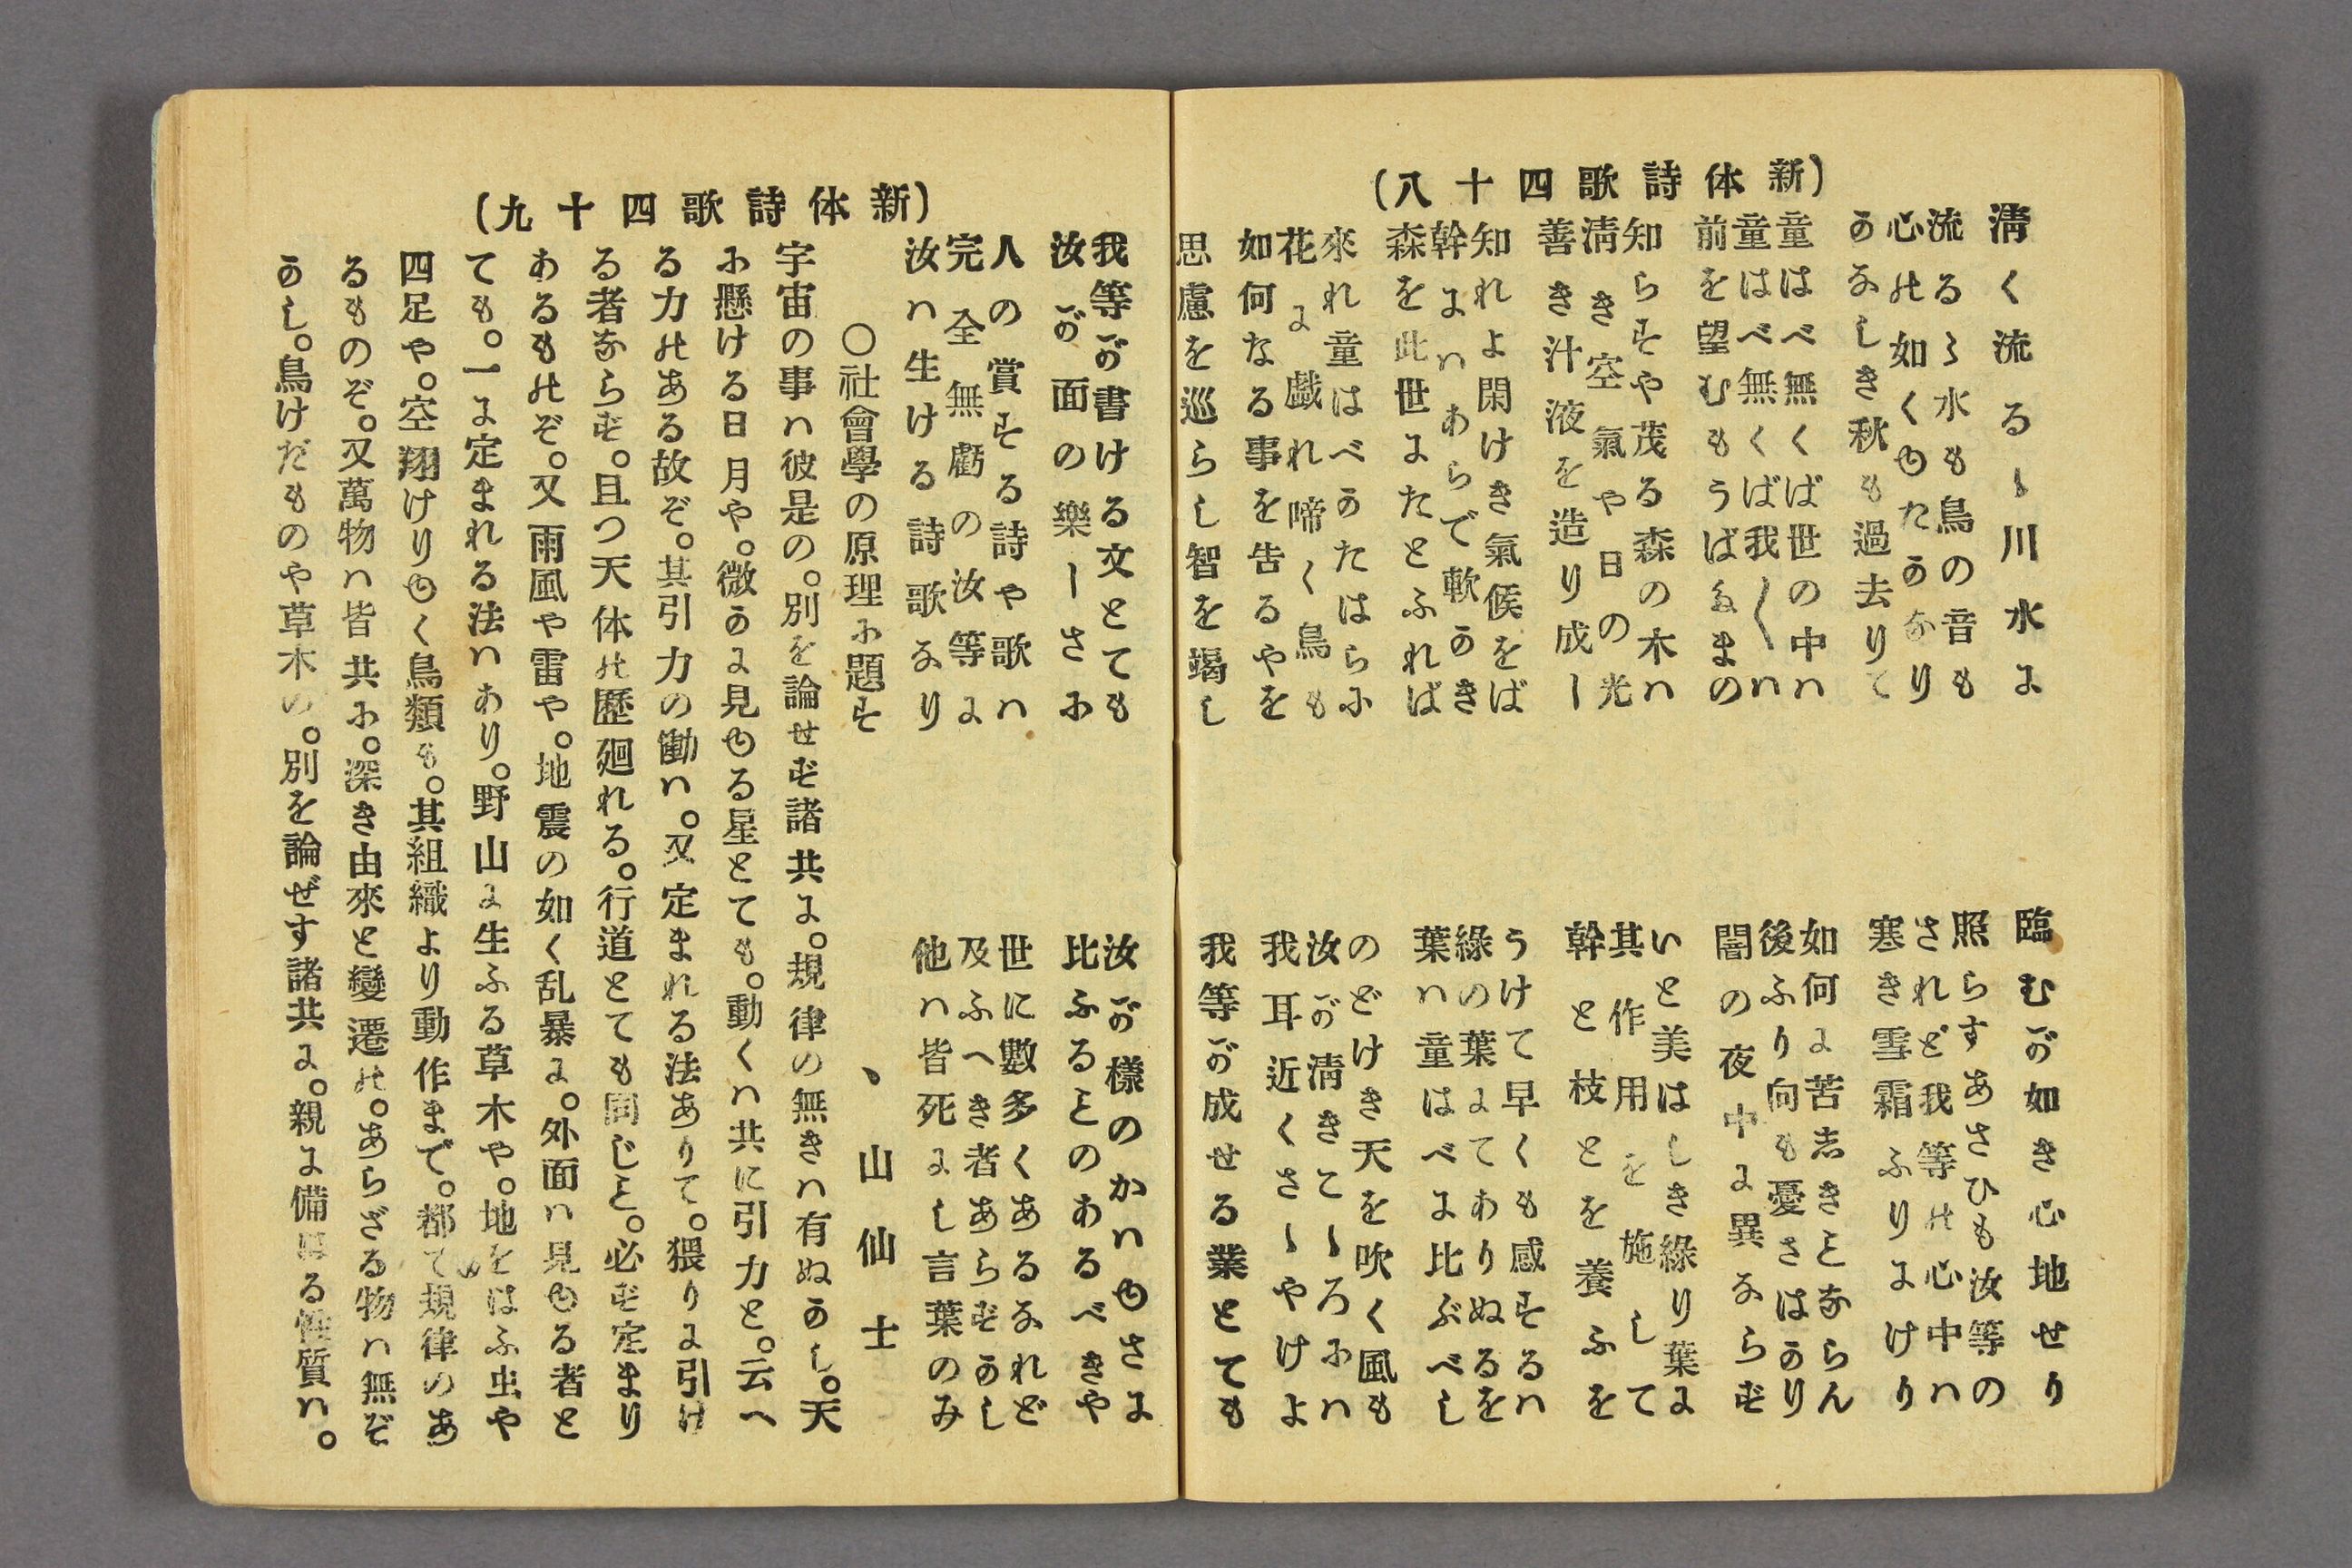 (新体詩歌四十八)
清く流るゝ川水に
臨むが如き心地せり
流るゝ水も鳥の音も
照らすあさひも汝等の
心の如くゆたかなり
されど我等の心中ハ
かなしき秋も過去りて
寒き雪霜ふりにけり
童はべ無くば世の中ハ
如何に苦しきことならん
童はべ無くば我〳〵ハ
後ふり向も憂さはかり
前を望むもうばたまの
闇の夜中に異ならず
知らずや茂る森の木ハ
いと美はしき緑り葉に
清き空氣や日の光
其作用を施して
善き汁液を造り成ー
幹と枝とを養ふを
知れよ閑けき氣候をば
うけて早くも感ずるハ
幹にハあらで軟かき
綠の葉にてありぬるを
森を此世にたとふれば
葉ハ童はべに比ぶべし
來れ童はべかたはらに
のどけき天を吹く風も
花に戯れ啼く鳥も
汝が清きこゝろにハ
如何なる事を告るやを
我耳近くさゝやけよ
思慮を巡らし智を竭し
我等が成せる業とても
(新体詩歌四十九)
我等が書ける文とても
汝が様のかハゆさに
汝が面の樂ーさに
比ふることのあるべきや
人の賞する詩や歌ハ
世に數多くあるなれど
完全無虧の汝等に
及ふへき者あらずかし
汝ハ生ける詩歌なり
他ハ皆死にし言葉のみ
〇社會學の原理に題す
ヽ山仙士
宇宙の事ハ彼是の。別を論せず諸共に。規律の無きハ有ぬかし。天
に懸ける日月や。微かに見ゆる星とても。動くハ共に引力と。云へ
る力のある故ぞ。其引力の働ハ。又定まれる法ありて。猥りに引け
る者ならず。且つ天体の歷廻れる。行道とても同じこと。必ず定まり
あるものぞ。又雨風や雷や。地震の如く乱暴に。外面ハ見ゆる者と
ても。一に定まれる法ハあり。野山に生ふる草木や。地をはふ虫や
四足や。空翔けりゆく鳥類も。其組織より動作まで。都て規律のあ
るものぞ。又萬物ハ皆共に。深き由來と變遷の。あらざる物ハ無ぞ
かし。鳥けだものや草木の。別を論ぜす諸共に。親に備はる性質ハ。